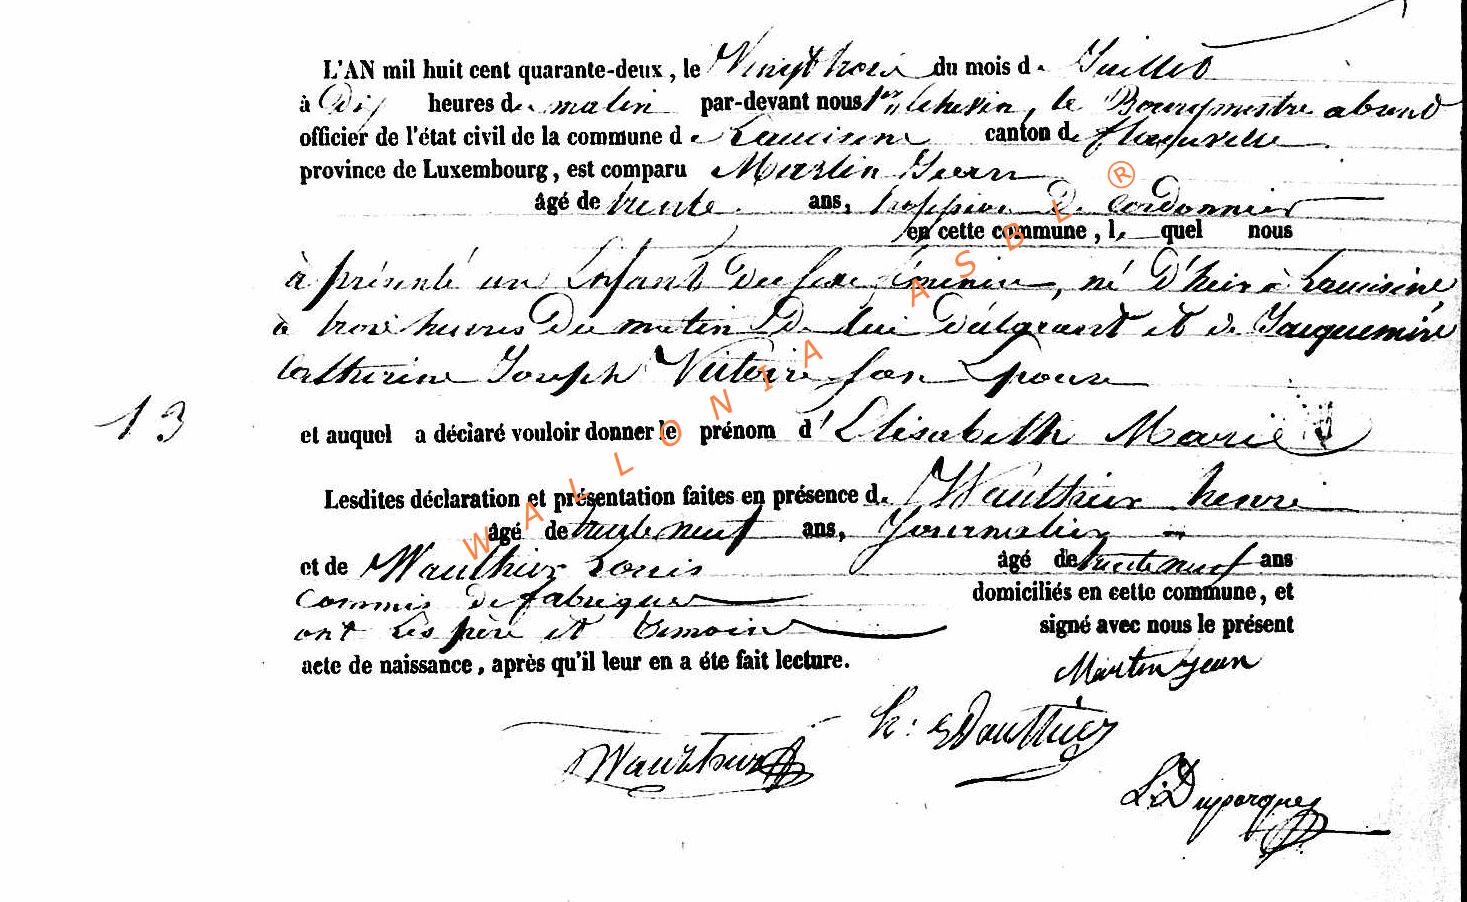 L'AN mil huit cent quarante-deux, le Vingt trois du mois de Juillet
à Dix heures du matin par-devant nous 1er Echevin, le Bourgmestre absent
officier de l'état civil de la commune de Lacuisine canton de florenville
province de Luxembourg, est comparu Martin Jean
âgé de trente ans, proffession de Cordonnier
en cette commune, le quel nous
à présenté un Enfant du sexe féminin, né d'hier à Lacuisine
à trois heures du matin De lui Déclarant et de Jacquemin
Catherine Joseph Victoire son Epouse
13
et auquel a déclaré vouloir donner le prénom d'Elisabeth Marie
Lesdites déclaration et présentation faites en présence de Wauthier henri
âgé de trente neuf ans, Journalier
et de Wauthier Louis âgé de trente neuf ans
Commis de fabrique domiciliés en cette commune, et
ont les père et temoins signé avec nous le présent
acte de naissance, après qu'il leur en a éte fait lecture.
Martin Jean
h: Wauthier
Wauthier
WALLONIA ASBL ®